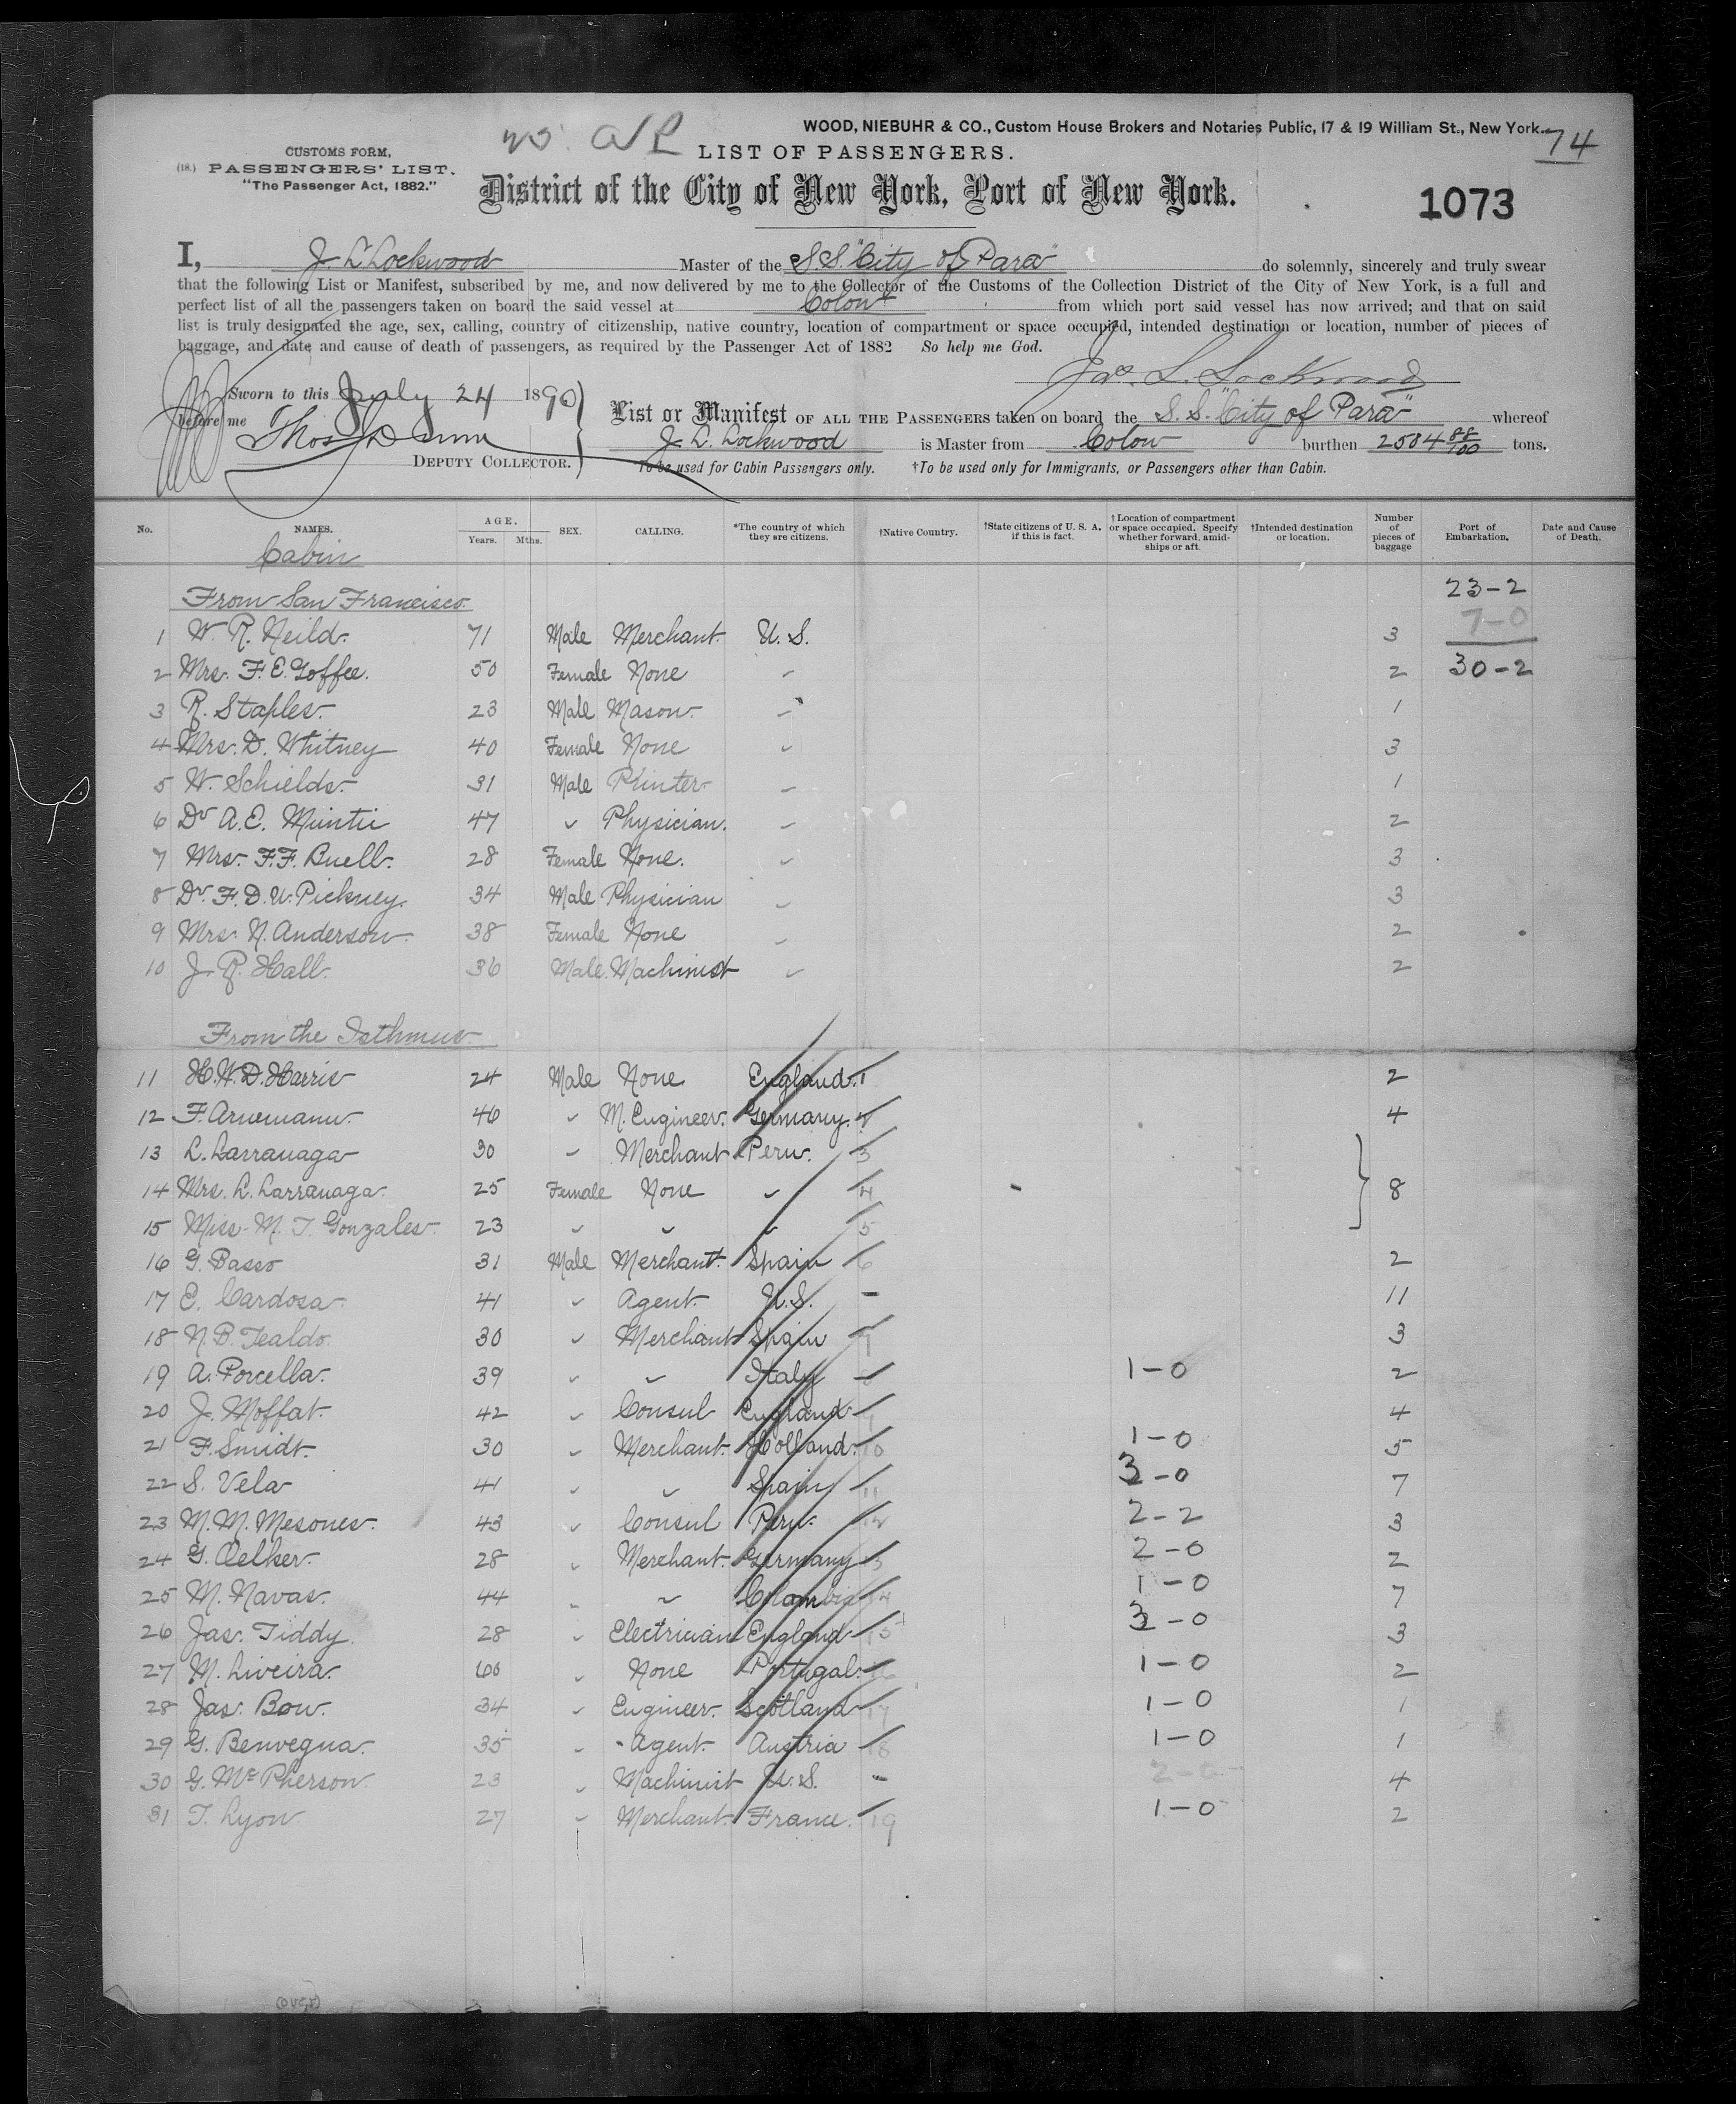 WOOD, NIEBUHR & CO., Custom House Brokers and Notaries Public, 17 & 19 William St., New York.
74
CUSTOMS FORM,
(18.) PASSENGERS' LIST.
"The Passenger Act, 1882."
LIST OF PASSENGERS.
District of the City of New York, Port of New York.
1073
I, J. L. Lockwood Master of the S.S. "City of Para" do solemnly, sincerely and truly swear
that the following List or Manifest, subscribed by me, and now delivered by me to the Collector of the Customs of the Collection District of the City of New York, is a full and
perfect list of all the passengers taken on board the said vessel at Colon from which port said vessel has now arrived; and that on said
list is truly designated the age, sex, calling, country of citizenship, native country, location of compartment or space occupied, intended destination or location, number of pieces of
baggage, and date and cause of death of passengers, as required by the Passenger Act of 1882 So help me God.
Jas. L. Lockwood
Sworn to this July 24 1890
before me
DEPUTY COLLECTOR.
List or Manifest OF ALL THE PASSENGERS taken on board the S. S. "City of Para" whereof
J. L. Lockwood is Master from Colon burthen 2504 88/100 tons.
*To be used for Cabin Passengers only. †To be used only for Immigrants, or Passengers other than Cabin.
No. NAMES. AGE. Years. Mths. SEX. CALLING. *The country of which they are citizens. †Native Country. †State citizens of U. S. A. if this is fact. †Location of compartment or space occupied. Specify whether forward, amidships or aft. †Intended destination or location. Number of pieces of baggage Port of Embarkation. Date and Cause of Death.
Cabin
From San Francisco 23-2
7-0
1 W. R. Neild. 71 Male Merchant. U. S. 3
2 Mrs. F. E. Goffee. 50 Female None " 2 30-2
3 R. Staples. 23 Male Mason. " 1
4 Mrs. D. Whitney 40 Female None " 3
5 W. Schields. 31 Male Printer " 1
6 Dr A. E. Muntii 47 " Physician. " 2
7 Mrs. F. F. Buell. 28 Female None. " 3
8 Dr. F. D. W. Pickney. 34 Male Physician " 3
9 Mrs. N. Anderson. 38 Female None " 2
10 J. R. Hall. 36 Male Machinist " 2
From the Isthmus
11 H. W. D. Harris 24 Male None England. 1 2
12 F. Arnemann. 46 " M. Engineer. Germany. 2 4
13 L. Larranaga 30 " Merchant Peru. 3
14 Mrs. L. Larranaga. 25 Female None " 4 8
15 Miss M. T. Gonzales. 23 " " " 5
16 G. Basso 31 Male Merchant. Spain 6 2
17 E. Cardosa. 41 " Agent. U. S. - 11
18 N. B. Tealdo. 30 " Merchant Spain 7 3
19 A. Porcella. 39 " " Italy 8 1-0 2
20 J. Moffat. 42 " Consul England 9 4
21 F. Smidt. 30 " Merchant. Holland. 10 1-0 5
22 S. Vela 41 " " Spain 11 3-0 7
23 M. M. Mesones. 43 " Consul Peru. 12 2-2 3
24 G. Oelker. 28 " Merchant. Germany 13 2-0 2
25 M. Navas. 44 " " Colombia 14 1-0 7
26 Jas. Tiddy. 28 " Electrician England 15 3-0 3
27 M. Liveira. 60 " None Portugal. 16 1-0 2
28 Jas. Bow. 34 " Engineer. Scotland 17 1-0 1
29 G. Benvegna. 35 " Agent. Austria 18 1-0 1
30 G. McPherson. 23 " Machinist U. S. - 2-0 4
31 T. Lyon 27 " Merchant. France. 19 1-0 2
(over)